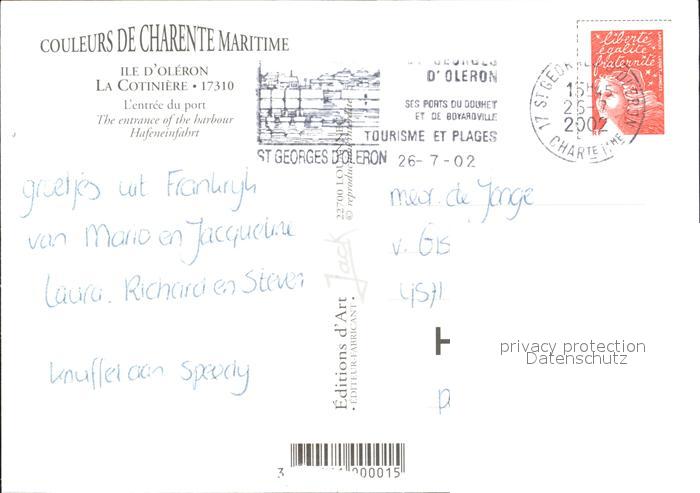 COULEURS DE CHARENTE MARITIME
ILE D'OLÉRON
LA COTINIÈRE • 17310
L'entrée du port
The entrance of the harbour
Hafeneinfahrt
ST GEORGES
D'OLERON
SES PORTS DU DOUHET
ET DE BOYARDVILLE
TOURISME ET PLAGES
ST GEORGES D'OLERON 26-7-02
liberté
égalité
fraternité
17 ST GEORGES D'OLERON
15H45
2002
CHARTE MME
groetjes uit Frankryk
van Mario en Jacqueline
Laura, Richard en Steven
knuffel aan Speedy
meur. de Jonge
v. Gis
4571
H
P
Editions d'Art Jack
• ÉDITEUR-FABRICANT •
22700
© reproduction
privacy protection
Datenschutz
3 000015